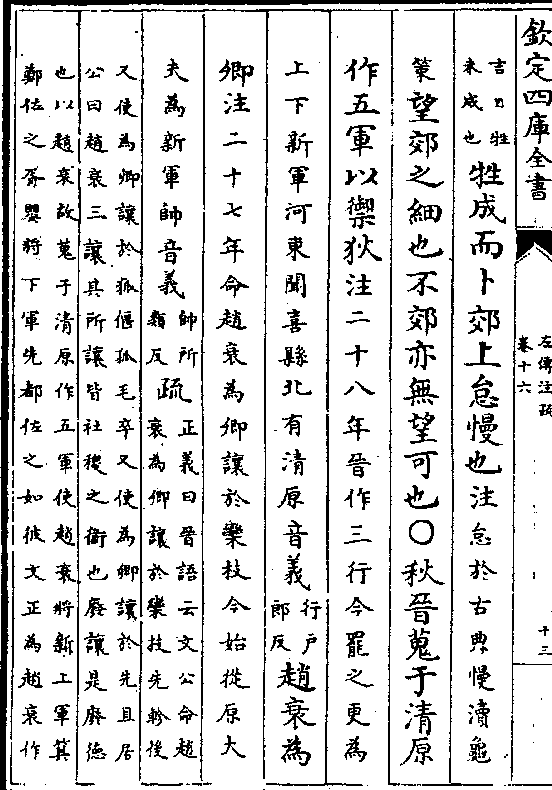 欽定四庫全書
左傳注疏
卷十六
十三
吉日牲
未成也
牲成而卜郊上怠慢也注怠於古典慢瀆龜
策望郊之細也不郊亦無望可也〇秋晉蒐于清原
作五軍以禦狄注二十八年晉作三行今罷之更為
上下新軍河東聞喜縣北有清原音義
行户
郎反
趙衰為
卿注二十七年命趙衰為卿讓於欒枝今始從原大
夫為新軍帥音義
帥所
類反
疏
正義曰晉語云文公命趙
衰為卿讓於欒枝先軫後
又使為卿讓於狐偃狐毛卒又使為卿讓於先且居
公曰趙衰三讓其所讓皆社稷之衞也廢讓是廢德
也以趙衰故蒐于清原作五軍使趙衰將新上軍箕
鄭佐之胥嬰將下軍先都佐之如彼文正為趙衰作